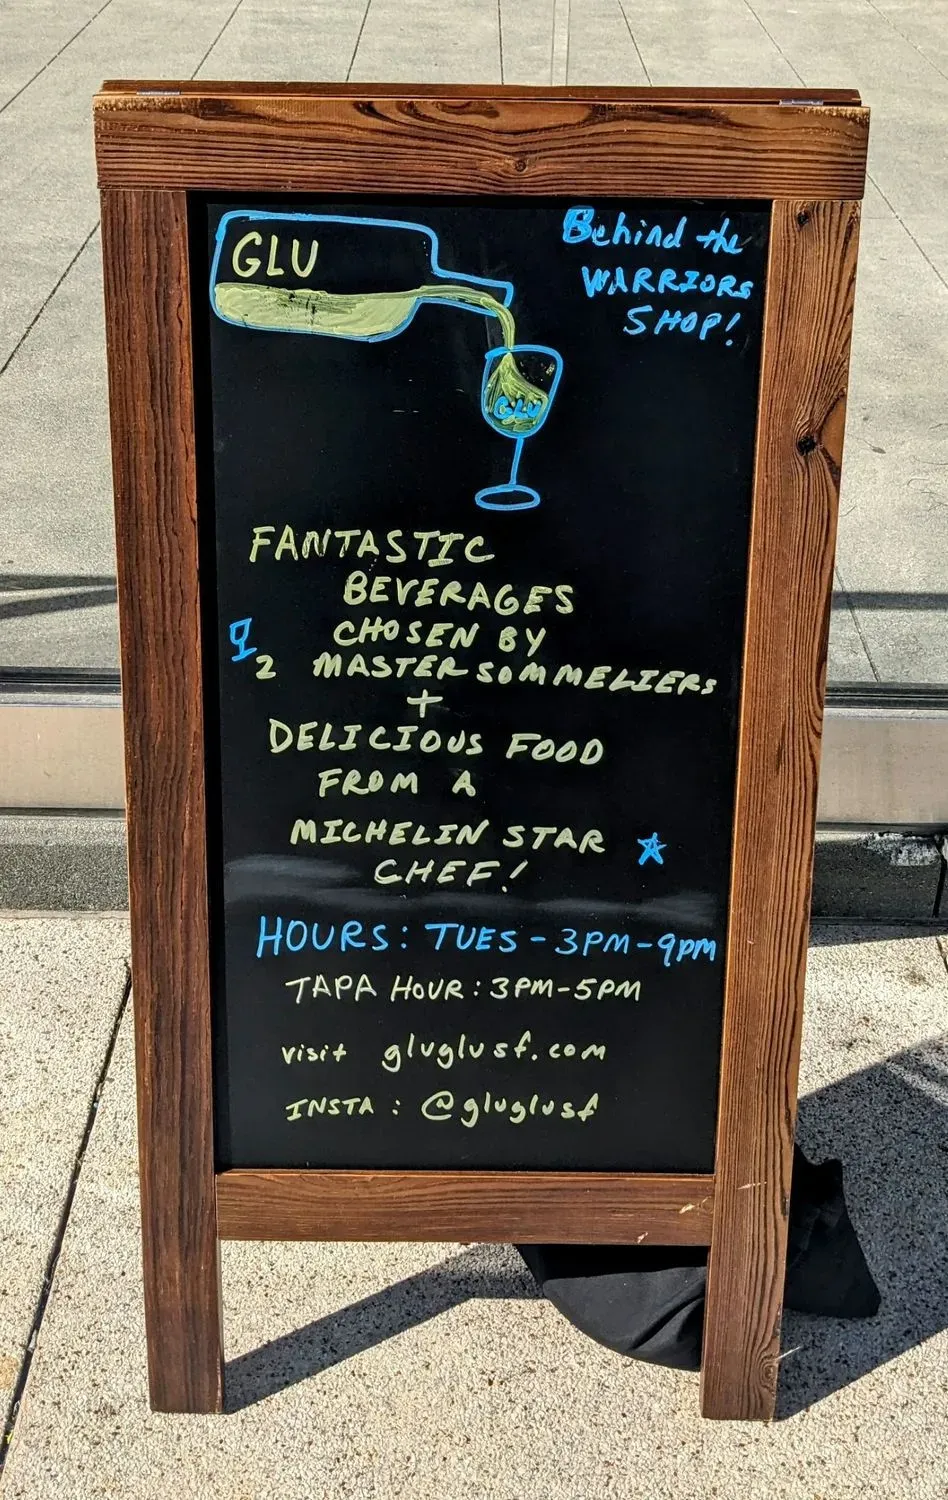 GLU
Behind the
WARRIORS
SHOP!
GLU
FANTASTIC
BEVERAGES
CHOSEN BY
2 MASTER SOMMELIERS
+
DELICIOUS FOOD
FROM A
MICHELIN STAR
CHEF!
HOURS: TUES - 3PM-9pm
TAPA HOUR: 3PM-5PM
visit gluglusf.com
INSTA: @gluglusf